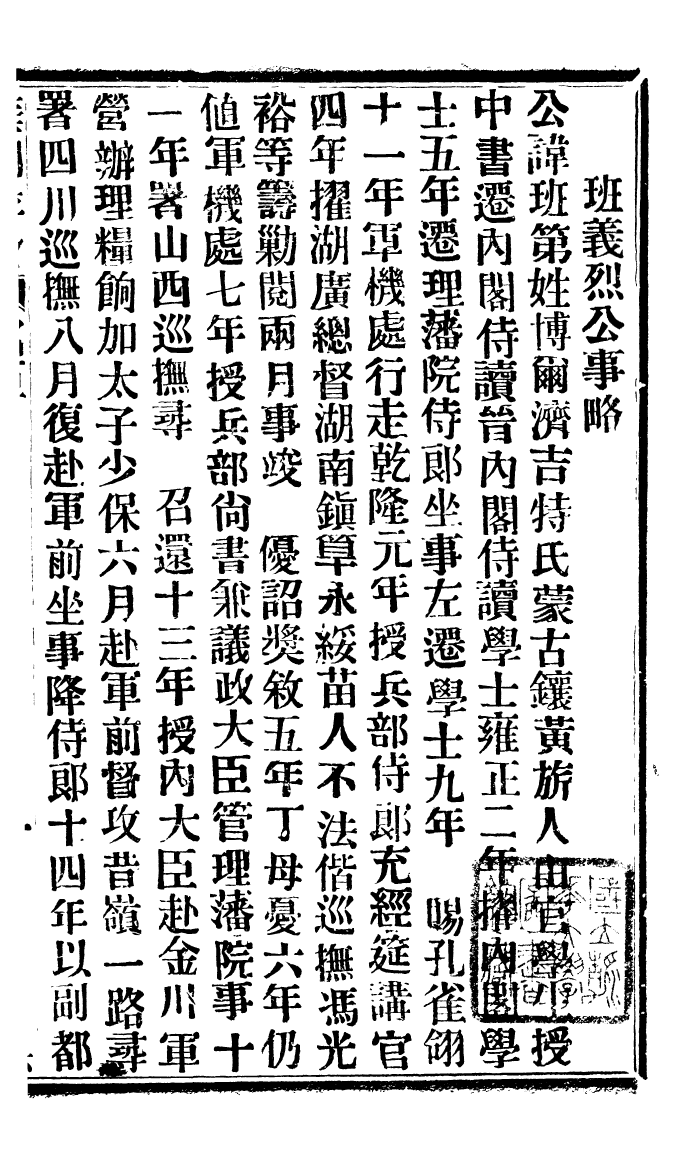 班義烈公事略
公諱班第姓博爾濟吉特氏蒙古鑲黃旂人由官學生授
中書遷內閣侍讀晉內閣侍讀學士雍正二年擢內閣學
士五年遷理藩院侍郎坐事左遷學士九年　賜孔雀翎
十一年軍機處行走乾隆元年授兵部侍郎充經筵講官
四年擢湖廣總督湖南鎮筸永綏苗人不法偕巡撫馮光
裕等籌勦閱兩月事竣　優詔獎敘五年丁母憂六年仍
値軍機處七年授兵部尙書兼議政大臣管理藩院事十
一年署山西巡撫尋　召還十三年授內大臣赴金川軍
營辦理糧餉加太子少保六月赴軍前督攻昔嶺一路尋
署四川巡撫八月復赴軍前坐事降侍郎十四年以副都